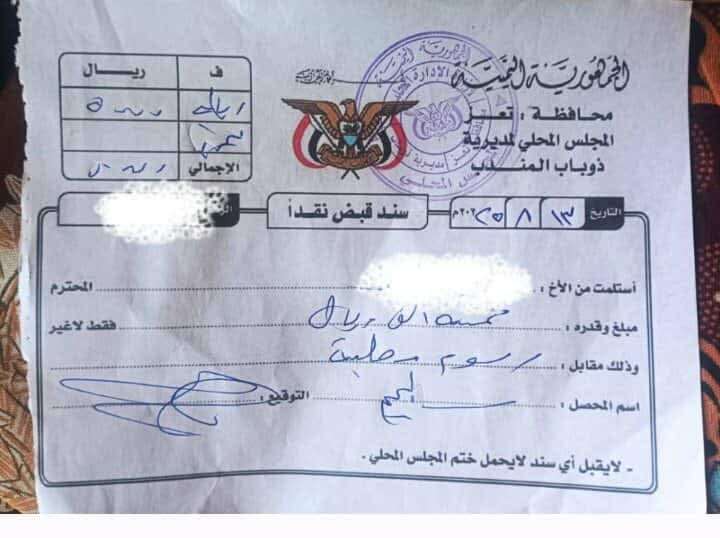 الجمهورية اليمنية
محافظة : تعز
المجلس المحلي لمديرية
ذوباب المندب
ف ريال
ريال
الإجمالي
سند قبض نقداً
التاريخ ١٣ / ٨ / ٢٠٢٥م
أستلمت من الأخ : المحترم
مبلغ وقدره : خمسة الف ريال فقط لاغير
وذلك مقابل : رسوم محلية
اسم المحصل : التوقيع :
- لايقبل أي سند لايحمل ختم المجلس المحلي .